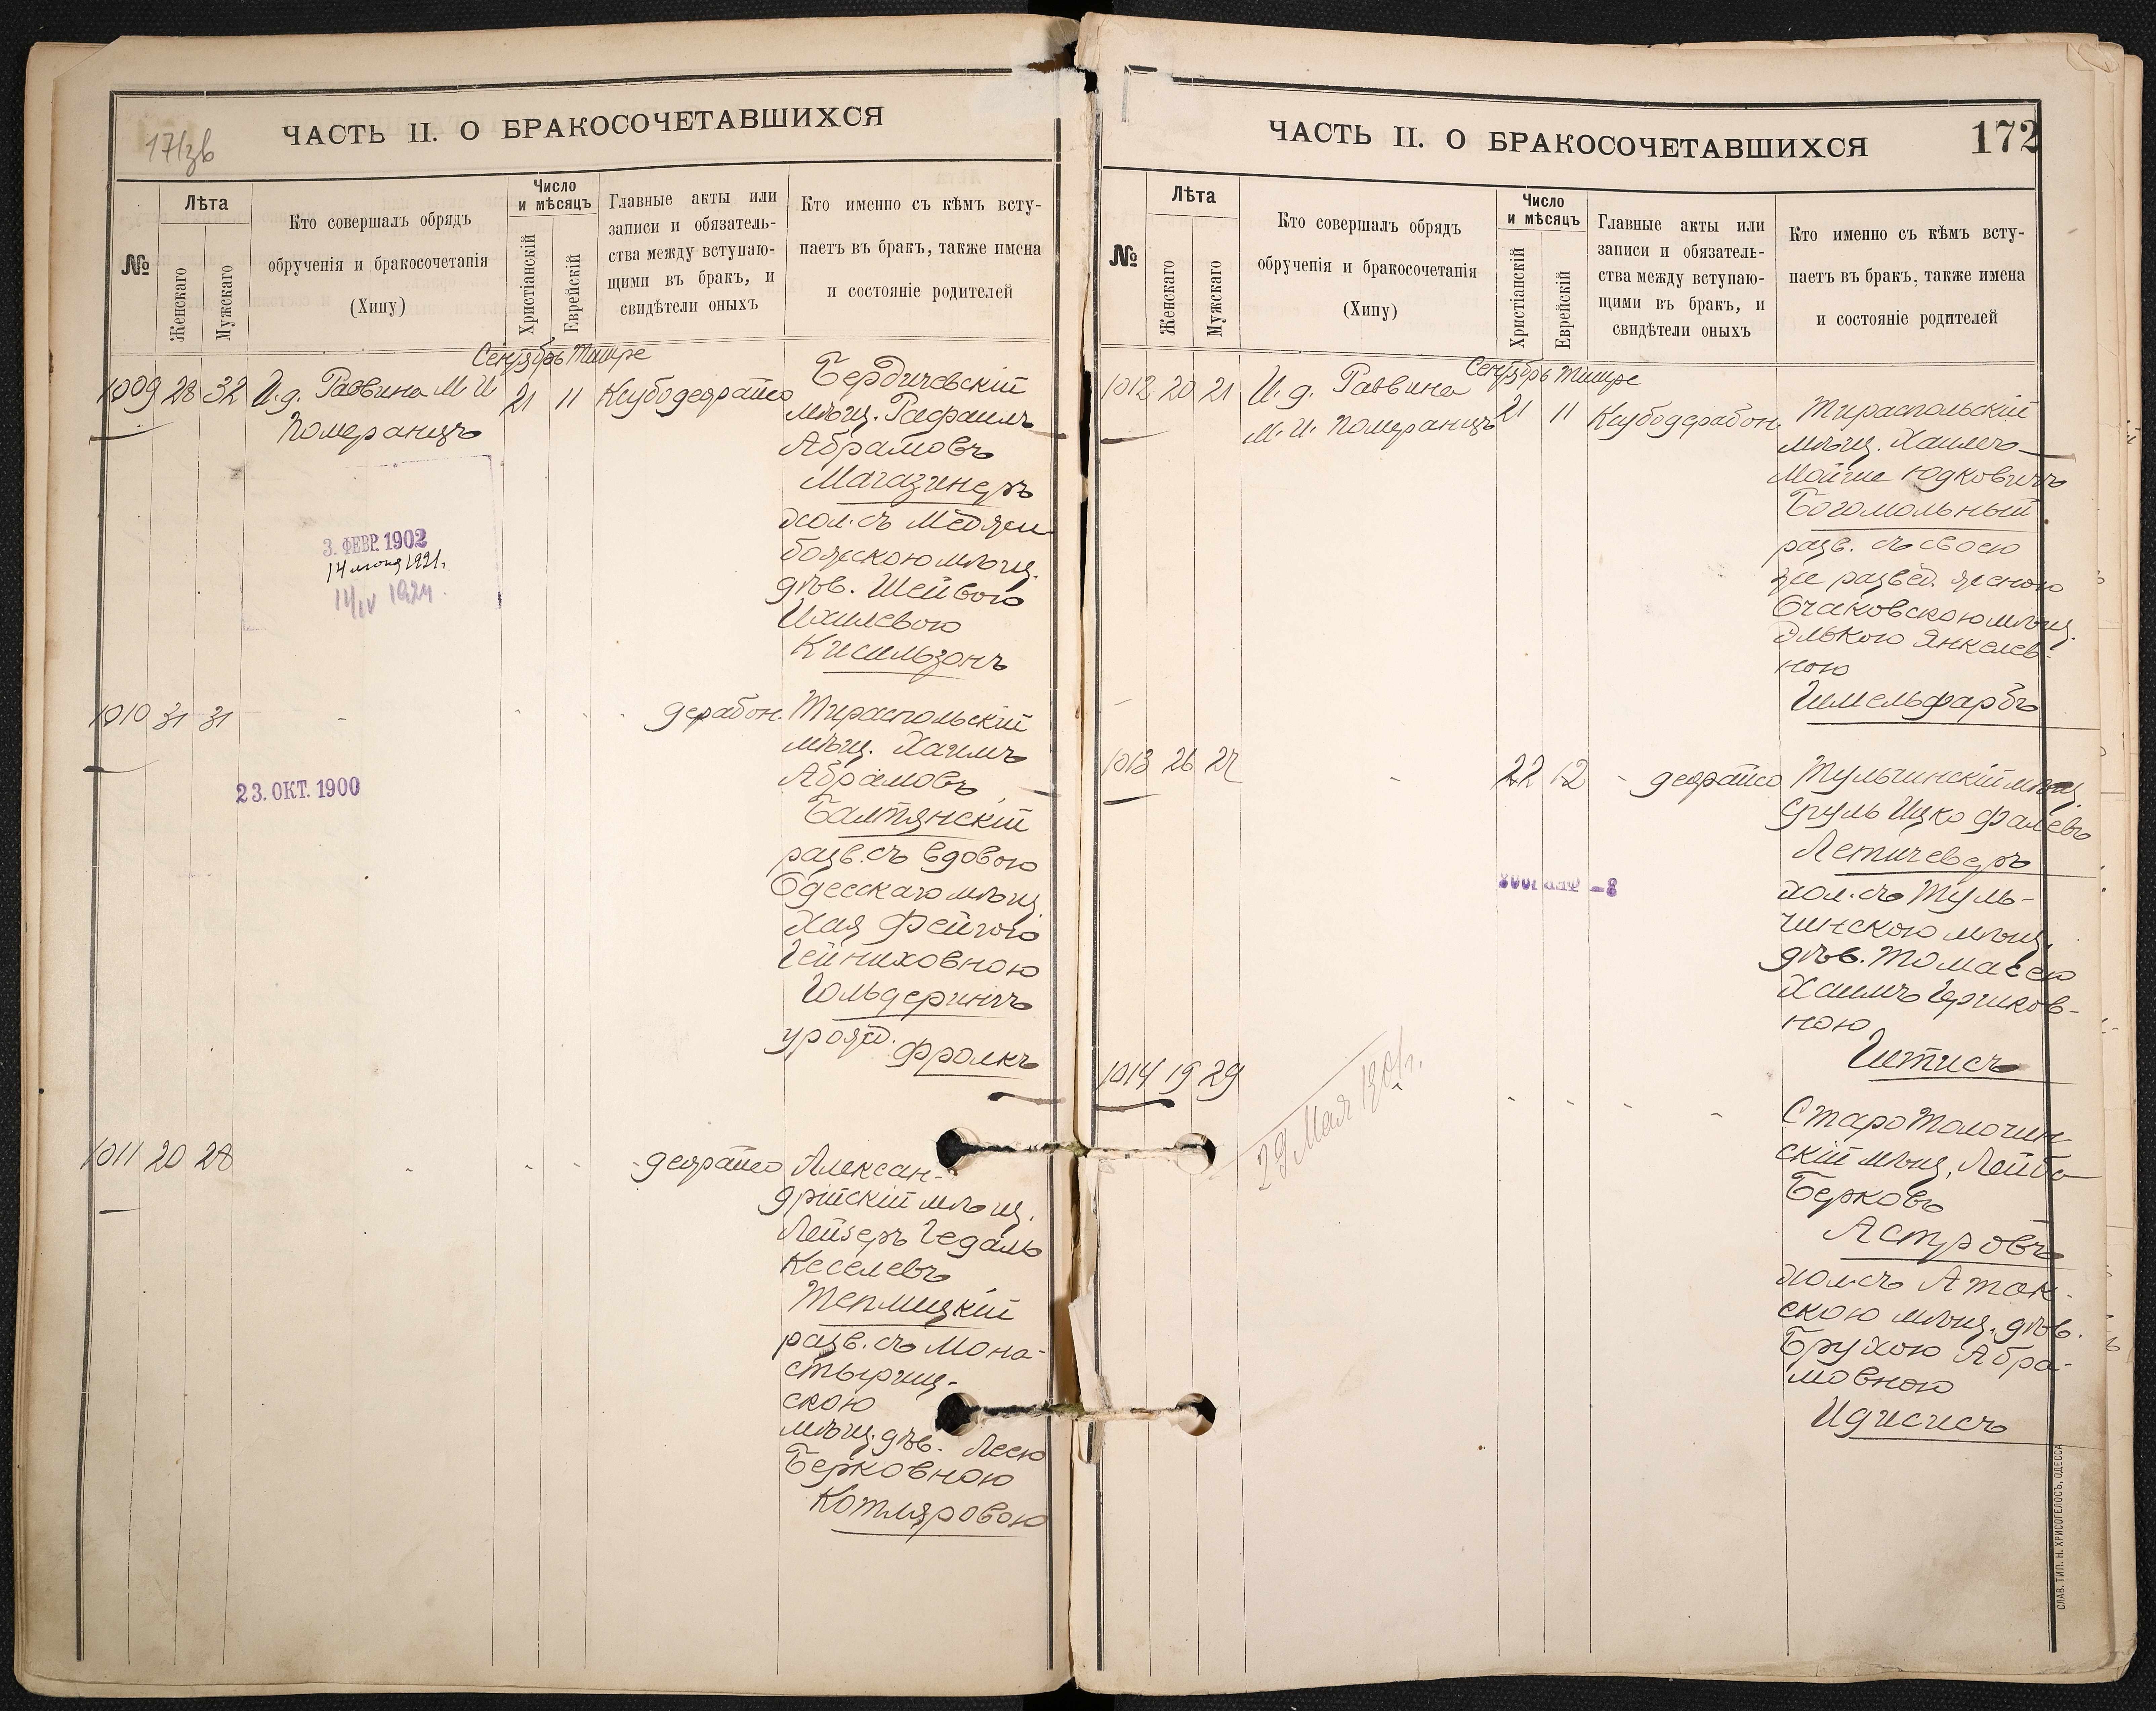 ЧАСТЬ II. О БРАКОСОЧЕТАВШИХСЯ
171зв
№
Лѣта
Женскаго
Мужскаго
Кто совершалъ обрядъ
обрученія и бракосочетанія
(Хипу)
Число
и мѣсяцъ
Христіанскій
Еврейскій
Главные акты или
записи и обязатель-
ства между вступаю-
щими въ бракъ, и
свидѣтели оныхъ
Кто именно съ кѣмъ всту-
паетъ въ бракъ, также имена
и состояніе родителей
Сентябрь Тишре
1009 28 32 И.д. Раввина М И
Померанцъ
21 11 Кубодерайсо
Бердичевскій
мѣщ. Рафаилъ
Абрамовъ
Магазинеръ
хол. съ Меджи-
божскою мѣщ.
дѣв. Шейвою
Ихилевою
Кисильзонъ
3. ФЕВР. 1902
14 іюня 1921 г.
14/IV 1924.
1010 31 31 - - - - дерабон.
Тираспольскій
мѣщ. Хаимъ
Абрамовъ
Балтянскій
разв. съ вдовою
Одесскаго мѣщ.
Хая Фейгою
Гейниховною
Гольдерингъ
урожд. Фролкъ
23. ОКТ. 1900
1011 20 28 - - - - дерайсо
Алексан-
дрійскій мѣщ.
Лейзеръ Гедаль
Кеселевъ
Теплицкій
разв. съ Мона-
стырищ-
скою
мѣщ. дѣв. Леею
Берковною
Котляровою
ЧАСТЬ II. О БРАКОСОЧЕТАВШИХСЯ
172
№
Лѣта
Женскаго
Мужскаго
Кто совершалъ обрядъ
обрученія и бракосочетанія
(Хипу)
Число
и мѣсяцъ
Христіанскій
Еврейскій
Главные акты или
записи и обязатель-
ства между вступаю-
щими въ бракъ, и
свидѣтели оныхъ
Кто именно съ кѣмъ всту-
паетъ въ бракъ, также имена
и состояніе родителей
Сентябрь Тишре
1012 20 21 И. д. Раввина
М. И. Померанцъ
21 11 Кубодерабон.
Тираспольскій
мѣщ. Хаимъ
Мойше Юдковичъ
Богомольный
разв. съ своею
же развед. женою
Очаковскою мѣщ.
Элькою Янкелев-
ною
Гимельфарбъ
1013 26 27 - 22 12 - дерайсо
Тульчинскій мѣщ.
Сруль Ицко Фалевъ
Летичеверъ
хол. съ Туль-
чинскою мѣщ.
дѣв. Томасею
Хаимъ Гершков-
ною
Гитисъ
1014 19 29 - - - -
29 Мая 1901 г.
Старо Толочин-
скій мѣщ. Лейба
Берковъ
Астровъ
хол. съ Атак-
скою мѣщ. дѣв.
Брухою Абра-
мовною
Идисисъ
СЛАВ. ТИП. Н. ХРИСОГЕЛОСЪ, ОДЕССА